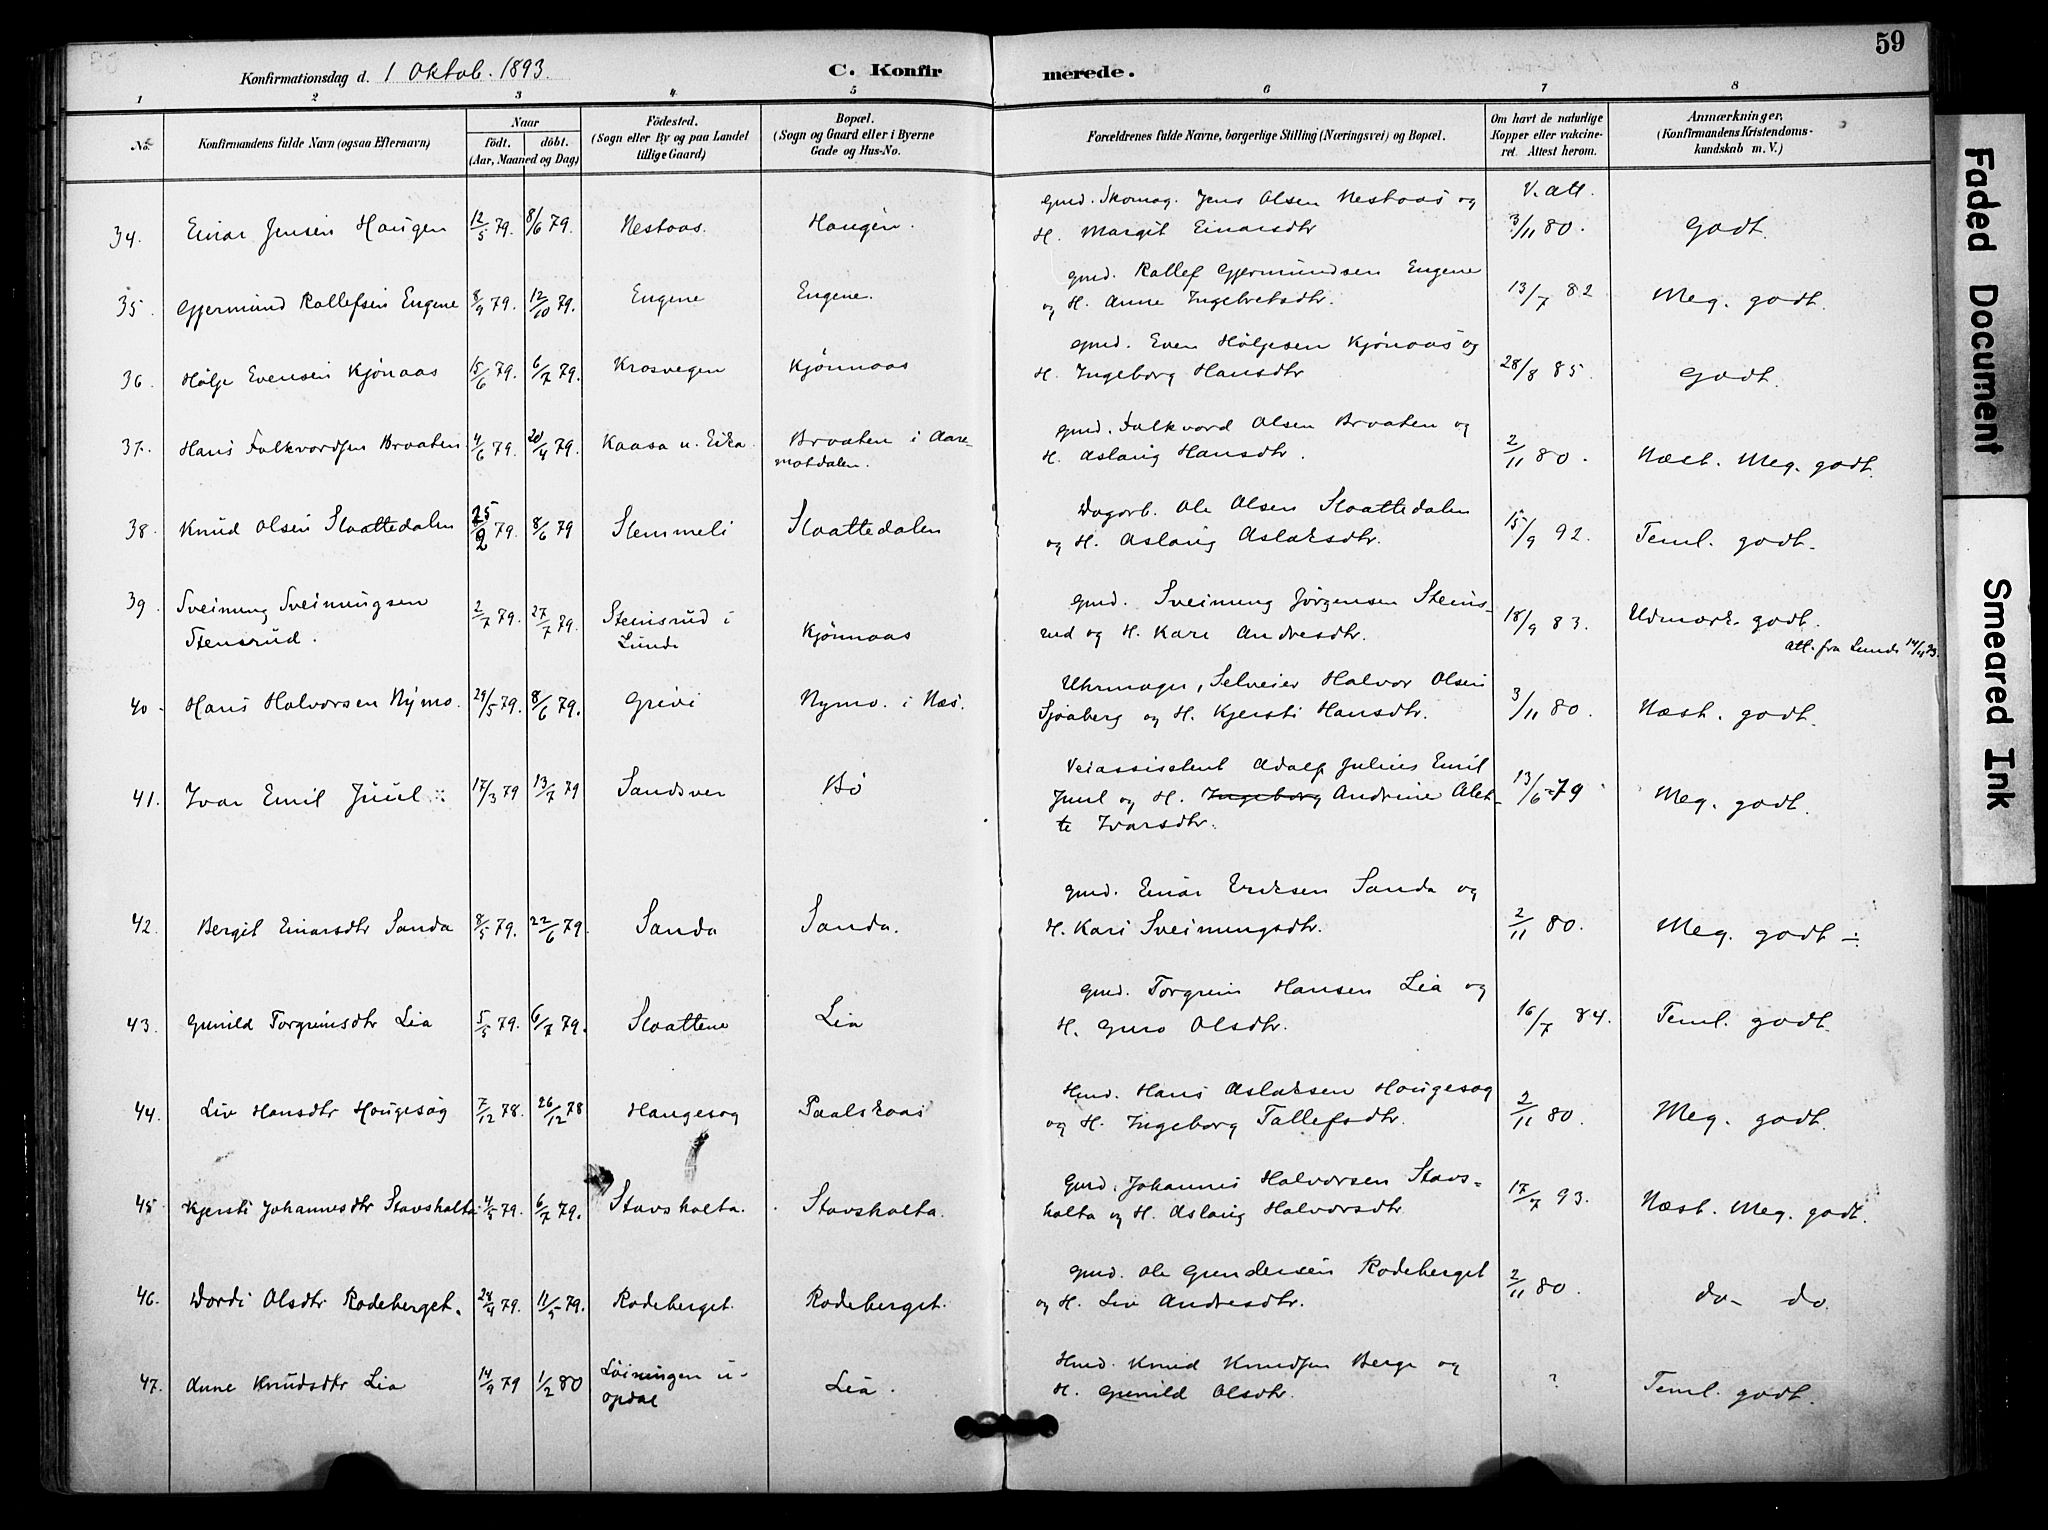 59
Konfirmationsdag d. 1 Oktob. 1893.
C. Konfirmerede.
1 2 3 4 5 6 7 8
No. Konfirmandens fulde Navn (ogsaa Efternavn) Naar født. døbt. (Aar, Maaned og Dag) Fødested. (Sogn eller By og paa Landet tillige Gaard) Bopæl. (Sogn og Gaard eller i Byerne Gade og Hus-No. Forældrenes fulde Navne, borgerlige Stilling (Næringsvei) og Bopæl. Om havt de naturlige Kopper eller vakcineret. Attest herom. Anmærkninger. (Konfirmandens Kristendomskundskab m. V.)
34. Einar Jensen Haugen 12/5 79. 8/6 79. Nestaas. Haugen. Gmd. Skomag. Jens Olsen Nestaas og
H. Margit Einarsdtr V. att. 3/11 80. Godt.
35. Gjermund Rollefsen Eugene 8/9 79. 12/10 79. Eugene Eugene. Gmd. Rollef Gjermundsen Eugene
og H. Anne Ingebretsdtr. 13/7 82 Meg. godt.
36. Hølje Evensen Kjønaas 15/6 79. 6/7 79. Krosvegen Kjønnaas Gmd. Even Høljesen Kjønaas og
H. Ingeborg Hansdtr 28/8 85. Godt.
37. Hans Folkvordsen Braaten 4/6 79. 20/4 79. Kaasa u. Eika Braaten i Aare-
motdalen. Gmd. Folkvord Olsen Braaten og
H. Aslaug Hansdtr. 2/11 80. Næst. Meg. godt.
38. Knud Olsen Slaattedalen 25/2 79. 8/6 79 Stemmeli Slaattedalen Dagarb. Ole Olsen Slaattedalen
og H. Aslaug Aslaksdtr. 15/9 92. Teml. godt.
39. Sveinung Sveinungsen
Stensrud. 2/7 79. 27/7 79. Steinsrud i
Lunde Kjønnaas Gmd. Sveinung Jørgensen Steins-
rud og H. Kari Andresdtr. 18/9 83. Udmærk. godt.
Att. fra Lunde
40. Hans Halvorsen Nymo. 29/5 79. 8/6 79. Grivi Nymo. i Næs. Uhrmager, Selveier Halvor Olsen
Sjøaberg og H. Kjersti Hansdtr. 3/11 80. Næst. godt.
41. Ivar Emil Juul 17/3 79 13/7 79 Sandsver Bø Veiassistent Adolf Julius Emil
Juul og H. Ingeborg Andrine Alet-
te Ivarsdtr. 13/6 79 Meg. godt.
42. Bergit Einarsdtr Sanda 8/5 79. 22/6 79. Sanda Sanda. Gmd. Einar Eriksen Sanda og
H. Kari Sveinungsdtr. 2/11 80. Meg. godt ÷
43. Gunild Torgrimsdtr Lia 5/5 79. 6/7 79. Slaattene Lia Gmd. Torgrim Hansen Lia og
H. Guro Olsdtr. 16/7 84. Teml. godt.
44. Liv Hansdtr Haugesag 7/12 78. 26/12 78 Haugesag Paalskaas Hmd. Hans Aslaksen Haugesag
og H. Ingeborg Tollefsdtr. 2/11 80. Meg. godt.
45. Kjersti Johannesdtr Stavsholta 4/5 79. 6/7 79. Stavsholta. Stavsholta. Gmd. Johannes Halvorsen Stavs-
holta og H. Aslaug Halvorsdtr. 17/7 93. Næst. Meg. godt.
46. Dordi Olsdtr Rodeberget. 24/4 79. 11/5 79. Rodeberget. Rodeberget. Gmd. Ole Gundersen Rodeberget
og H. Liv Andresdtr. 2/11 80. do - do.
47. Anne Knudsdtr Lia 14/9 79 1/2 80 Løiningen u-
opdal Lia. Hmd. Knud Knudsen Berge og
H. Gunild Olsdtr. ? Teml. godt.
Faded Document
Smeared Ink